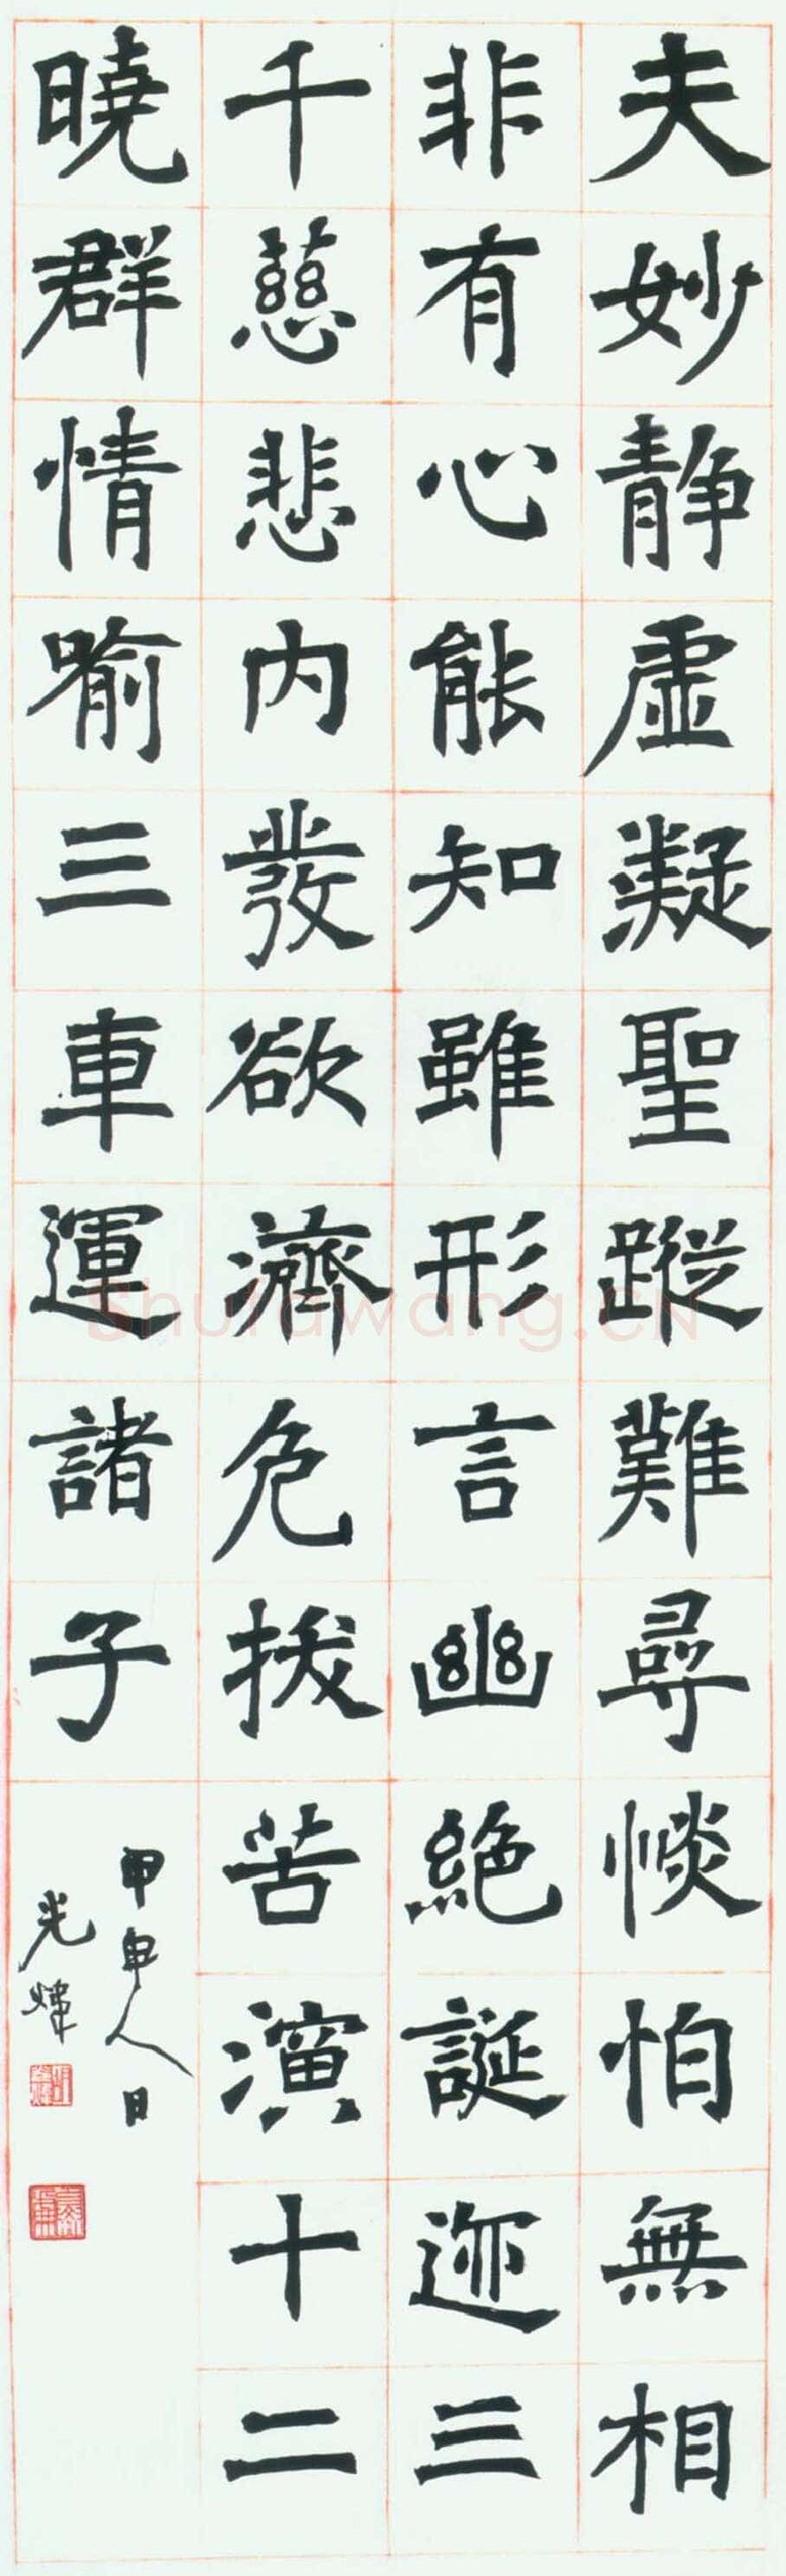 夫妙靜虛凝聖蹤難尋惔怕無相
非有心能知雖形言幽絕誕迹三
千慈悲內發欲濟危拔苦演十二
曉群情喻三車運諸子
甲申人日
光煒
Shufawang.CN